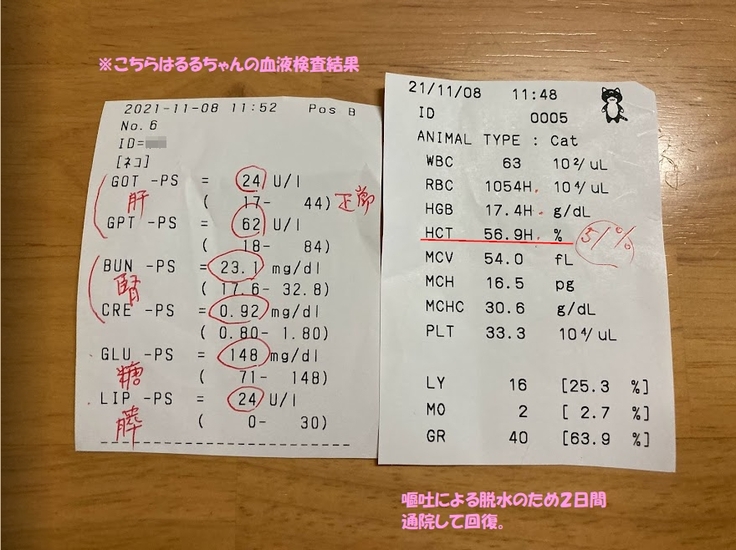 ※こちらはるるちゃんの血液検査結果
2021-11-08 11:52 Pos B
No.6
ID=
[ネコ]
GOT -PS = 24 U/l
肝 ( 17- 44) 正常
GPT -PS = 62 U/l
( 18- 84)
BUN -PS = 23.1 mg/dl
腎 ( 17.6- 32.8)
CRE -PS = 0.92 mg/dl
( 0.80- 1.80)
GLU -PS = 148 mg/dl
糖 ( 71- 148)
LIP -PS = 24 U/l
膵 ( 0- 30)
21/11/08 11:48
ID 0005
ANIMAL TYPE : Cat
WBC 63 10²/uL
RBC 1054H 10⁴/uL
HGB 17.4H g/dL
HCT 56.9H % 51%
MCV 54.0 fL
MCH 16.5 pg
MCHC 30.6 g/dL
PLT 33.3 10⁴/uL
LY 16 [25.3 %]
MO 2 [ 2.7 %]
GR 40 [63.9 %]
嘔吐による脱水のため2日間
通院して回復。